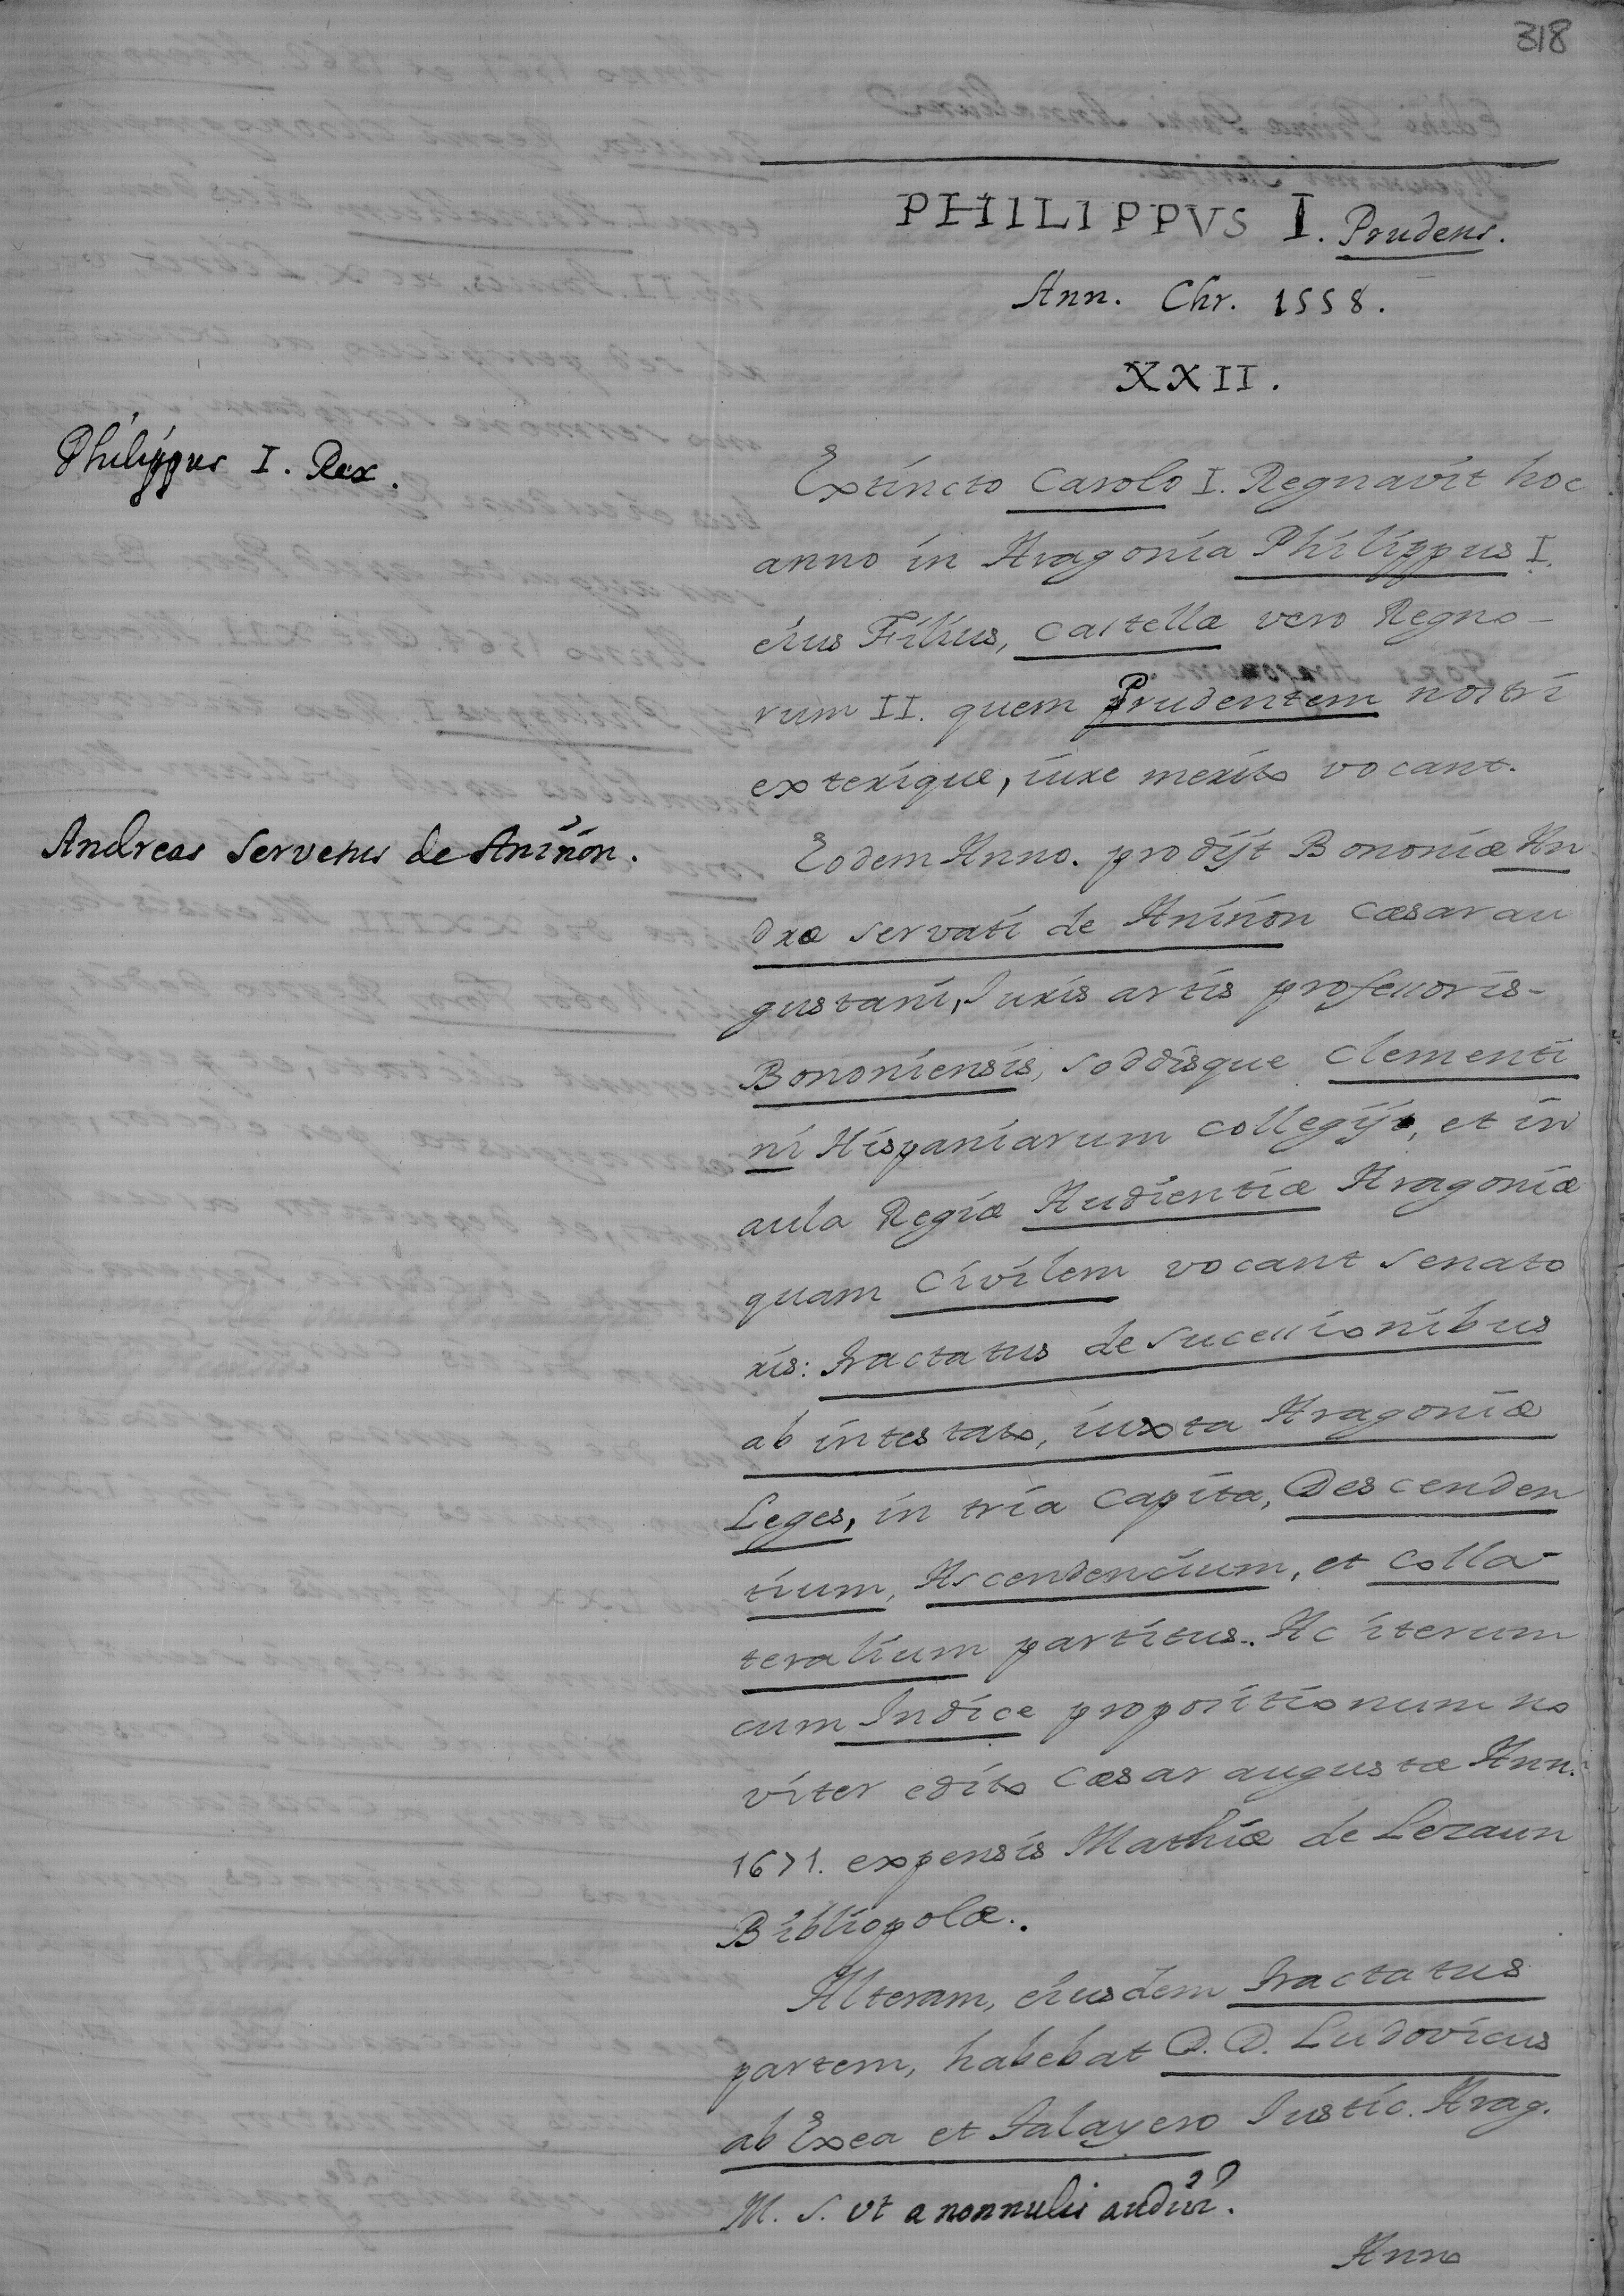 318
PHILIPPVS I. Prudens.
Ann. Chr. 1558.
XXII.
Philippus I. Rex.
Extincto Carolo I. Regnavit hoc
anno in Aragonia Philippus I.
eius Filius, Castellæ vero Regno-
rum II. quem Prudentem nostri
exterique, iure merito vocant.
Andreas Servetus de Aniñon.
Eodem Anno. prodijt Bononiæ An
dræ Servati de Aniñon Cæsarau
gustani, Juris artis professoris-
Bononiensis, soddisque Clementi
ni Hispaniarum Collegij, et in
aula Regiæ Audientiæ Aragoniæ
quam Civilem vocant Senato
ris: Tractatus de Sucessionibus
ab intestato, iuxta Aragoniæ
Leges, in tria Capita, Descenden
tium, Ascendencium, et Colla-
teralium partitus. Ac iterum
cum Indice propositionum no
viter edito Cæsaraugustæ Ann.
1671. expensis Mathiæ de Lezaun
Bibliopolæ.
Alteram, eiusdem Tractatus
partem, habebat D. D. Ludovicus
ab Exea et Talayero Justic. Arag.
M. S. vt a nonnulis audivi.
Anno